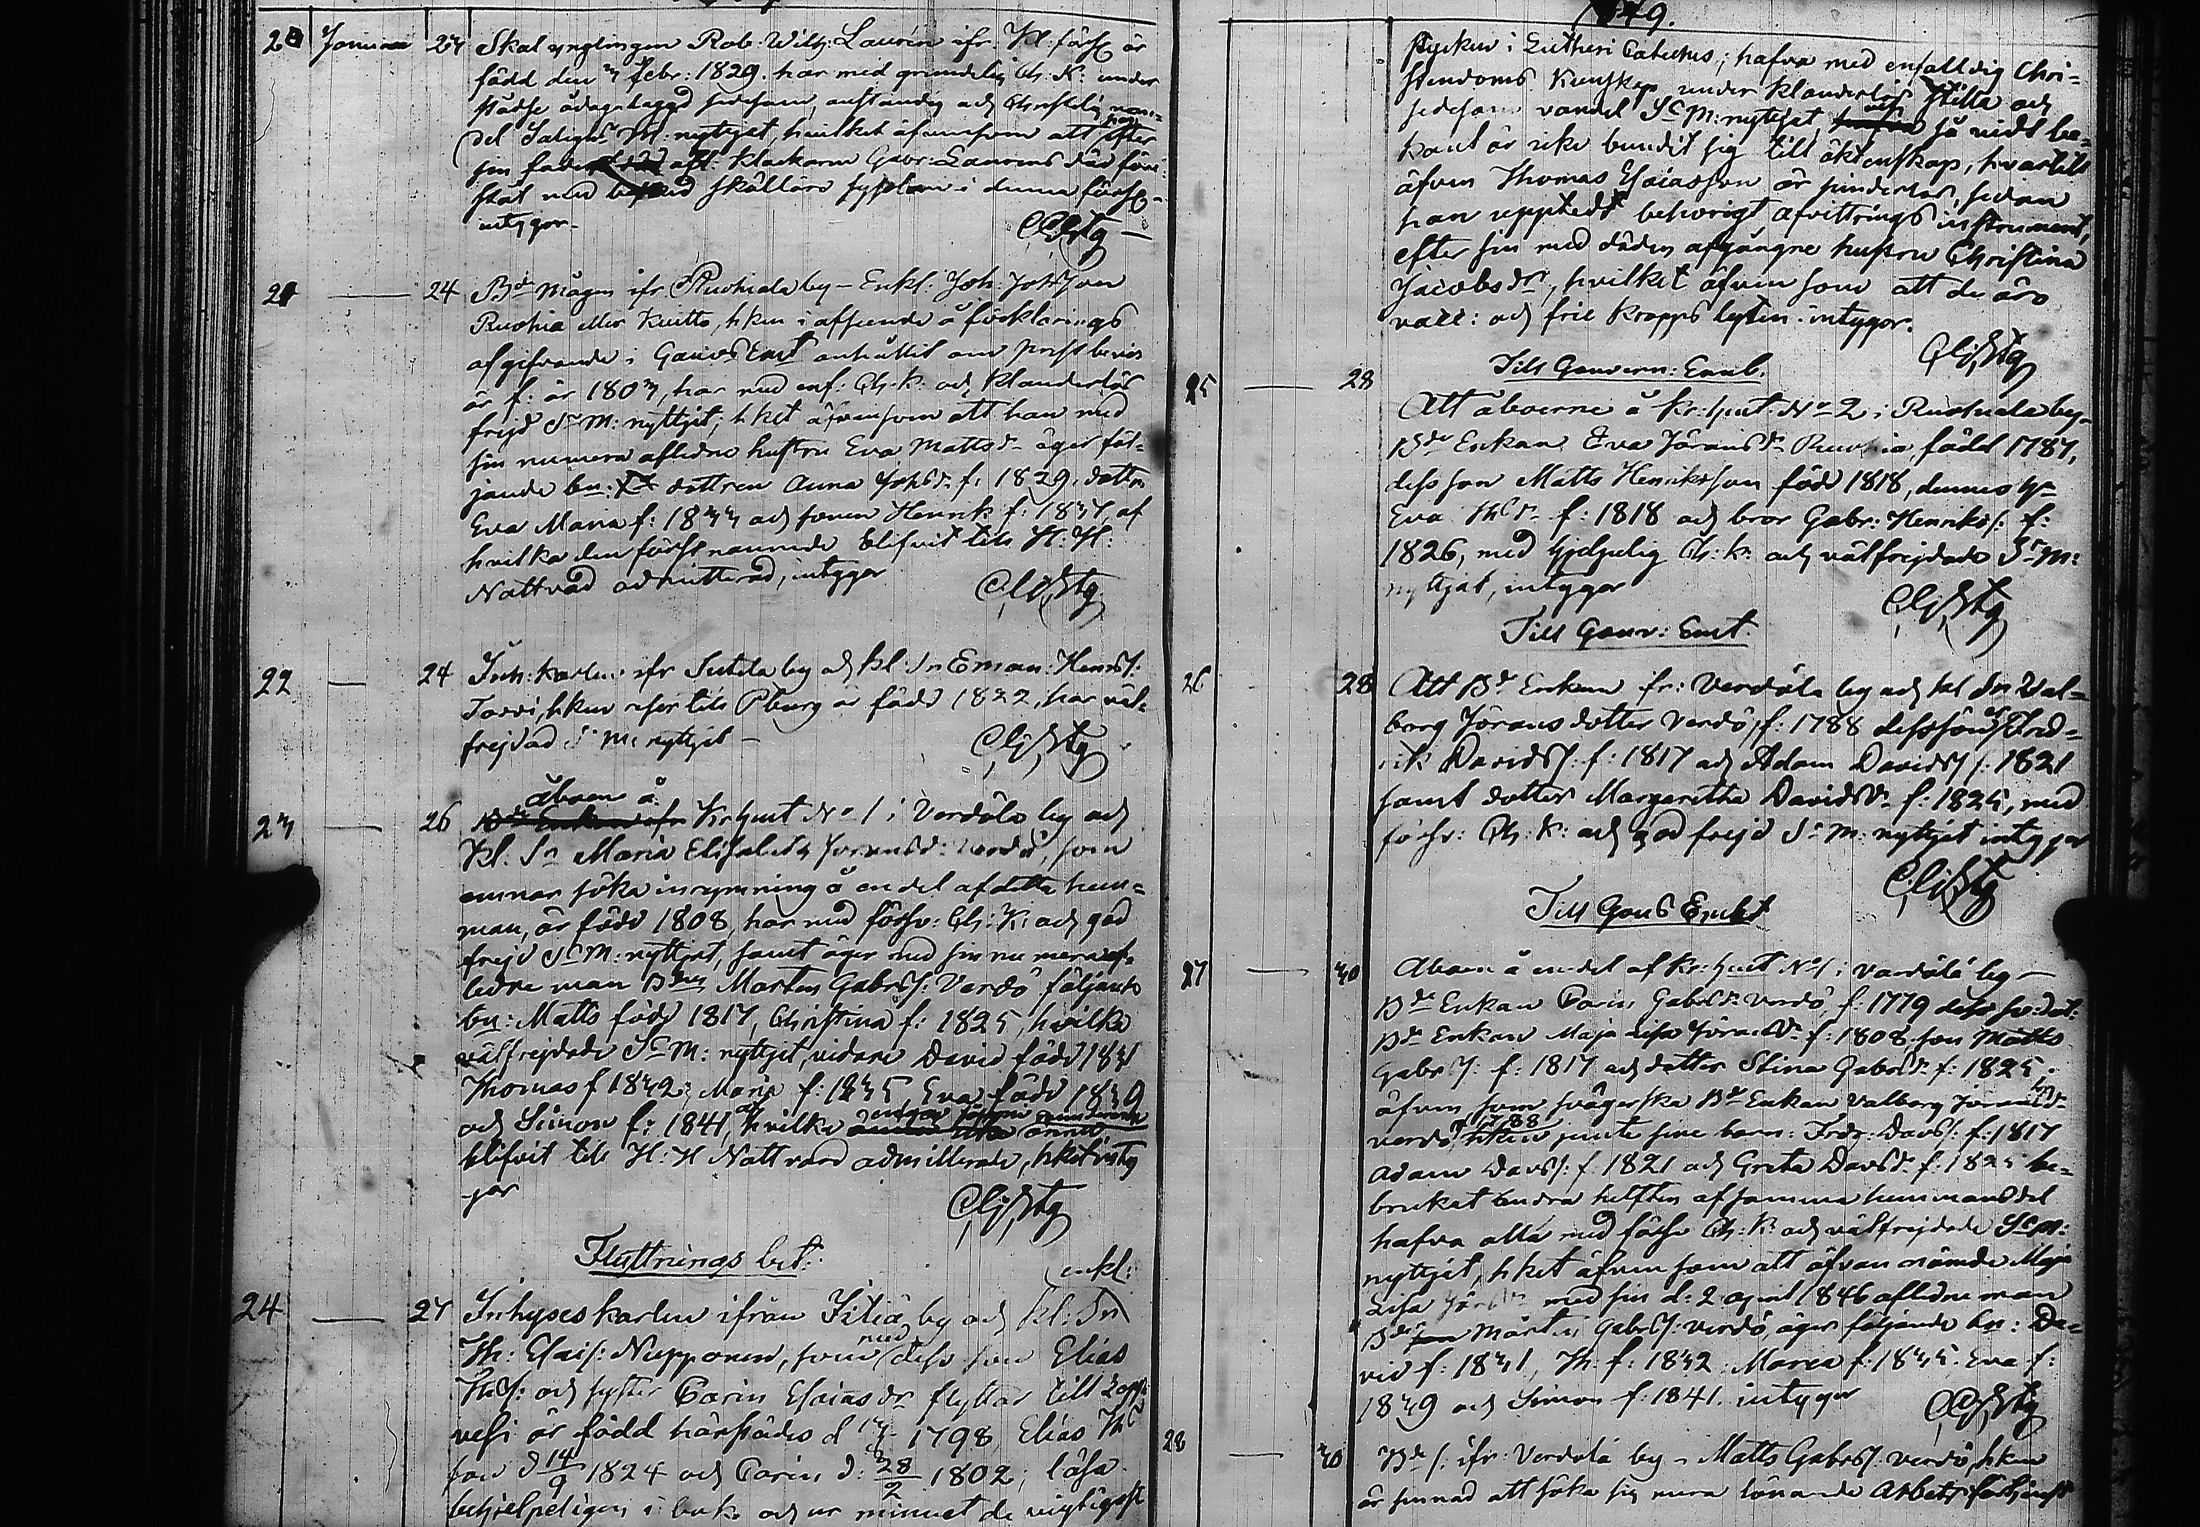 20 Januari 23 Skal ynglingen Rob: Wilh: Laurén ifr. Kl. förs: är
född den 3 febr: 1829. har med grundelig Ch: K: under
städse ådagalaggd sedesam, anständig och Christelig wan-
del Saligh: M: nyttjat, hvilket äfvensom att efter
sin fader afl: klockaren Gabr: Laurens död före-
stått med skällare sysslan i denna förs:
intygar.
CGStg
21 — 24 Bde mågen ifr Ruohiala by – Enkl. Joh: Johsson
Ruohia eller Kuitto, hken i afseende å förklarings
afgifvande i Gouvs Emt anhållit om prestbevis
är f: år 1803, har med enf: Ch: K: och klanderlös
frejd S: M: nyttjat; hket äfvensom att han med
sin numera aflidne hustru Eva Mattsdr äger föl-
jande bn: dottren Anna Johsdr f. 1829, dottren
Eva Maria f: 1833 och sonen Henrik f: 1837, af
hvilka den förstnämnde blifvit till H: H:
Nattvard admitterad, intygar
CGStg
22 — 24 Inh: karlen ifr Sutela by och kl: Sn Eman: Henrs:
Torvi, hken reser till Pburg är född 1822, har väl-
frejdad S: M: nyttjat –
CGStg
åboen å
23 — 26 Bde Enkan ifr Kr: hemt No 1 i Verdölä by och
Kl: Sn Maria Elisabeth Jöransdr Verdö, som
ämnar söka inrymning å en del af detta hem-
man, är född 1808, har med försv: Ch: K: och god
frejd S: M: nyttjat, samt äger med sin numera af-
lidne man Bden Morten Gabrs: Verdö följande
bn: Matts född 1817, Christina f: 1825, hvilka
välfrejdade S: M: nyttjat, vidare David född 1831
Thomas f 1832, Maria f: 1835, Eva född 1839
och Simon f: 1841, af hvilka
blifvit till H: H Nattvard admitterade, hket inty-
gar
CGStg
Flyttnings bet:
enkl:
24 — 27 Inhyses karlen ifrån Jitiä by och kl: Sn
Th: Esais: Nupponen, som med dess son Elias
Ths: och syster Carin Esaiasdr flyttar till Lapp-
vesi är född härstädes d 1798, Elias Ths
son d 14/9 1824 och Carin d: 28/2 1802; läsa
behjelpeligen i bok och ur minnet de vigtigaste
1849.
stycken i Lutheri Cateches; hafva med enfalldig Chri-
stendoms kunskap under klanderlös stilla och
sedesam vandel S: M: nyttjat så vidt be-
kant är icke bundit sig till äktenskap, hvartill
äfven Thomas Esaiasson är hinderlös, sedan
han upptedt behörigt afvittrings instrument,
efter sin med döden afgångne hustru Christina
Jacobsdr, hvilket äfvensom att de äro
vacc: och frie kropps lyten intygar.
CGStg
Till Gouvern: Emb.
25 — 28 Att åboerne å Kr: hemt No 2 i Ruohiala by
Bde Enkan Eva Jöransdr Ruohia, född 1787,
dess son Matts Henriksson född 1818, dennes h:
Eva Thsdr f: 1818 och bror Gabr: Henriks: f:
1826, med hjelpelig Ch: K: och välfrejdade S: M:
nyttjat, intygar
CGStg
Till Gouv: Emt.
26 — 28 Att Bde Enkan fr: Verdölä by och kl Sn Val-
borg Jörans dotter Verdö, f: 1788 dess söner Fred-
rik Davids: f: 1817 och Adam Davids: f: 1821
samt dotter Margaretha Davidsdr f: 1825, med
försv: Ch: K: och god frejd S: M: nyttjat intygar
CGStg
Till Gouvs Embt
27 — 30 Åboen å en del af Kr: hemt No 1 i Verdölä by –
Bde Enkan Carin Gabrsdr Verdö, f: 1779 dess
Bde Enkan Maja Lisa Jöransdr f: 1808, son Matts
Gabrs: f: 1817 och dotter Stina Gabrsdr f: 1825.
äfvensom svägerska Bde Enkan Valborg Jöransdr
Verdö f 1788 jemte sine barn: Fredr: Davs: f: 1817
Adam Davs: f. 1821 och Greta Davsdr f: 1825 be-
brukat andra helften af samma hemmansdel
hafva alla med försv Ch: K: och välfrejdade S: M:
nyttjat, hket äfvensom att äfvannämnde Maja
Lisa Jöransdr med sin d: 2 april 1846 aflidne man
Bden Mårten Gabrs: Verdö, äger följande bn: Da-
vid f: 1831, Th: f: 1832 Maria f: 1835. Eva f:
1839 och Simon f: 1841. intygar
CGStg
28 — 30 Bde s: ifr: Verdölä by – Matts Gabrs: Verdö, hken
är sinnad att söka sig mera lönande arbets förtjenst